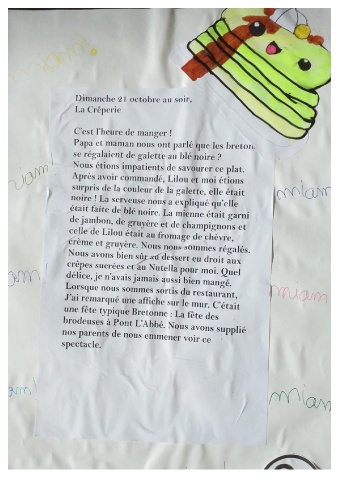 miam.
Dimanche 21 octobre au soir,
La Crêperie
C'est l'heure de manger !
Papa et maman nous ont parlé que les breton
se régalaient de galette au blé noire ?
Nous étions impatients de savourer ce plat.
Après avoir commandé, Lilou et moi étions
surpris de la couleur de la galette, elle était
noire ! La serveuse nous a expliqué qu'elle
était faite de blé noire. La mienne était garni
de jambon, de gruyère et de champignons et
celle de Lilou était au fromage de chèvre,
crème et gruyère. Nous nous sommes régalés.
Nous avons bien sûr au dessert eu droit aux
crêpes sucrées et au Nutella pour moi. Quel
délice, je n'avais jamais aussi bien mangé.
Lorsque nous sommes sortis du restaurant,
J'ai remarqué une affiche sur le mur. C'était
une fête typique Bretonne : La fête des
brodeuses à Pont L'Abbé. Nous avons supplié
nos parents de nous emmener voir ce
spectacle.
miam
miam
miam